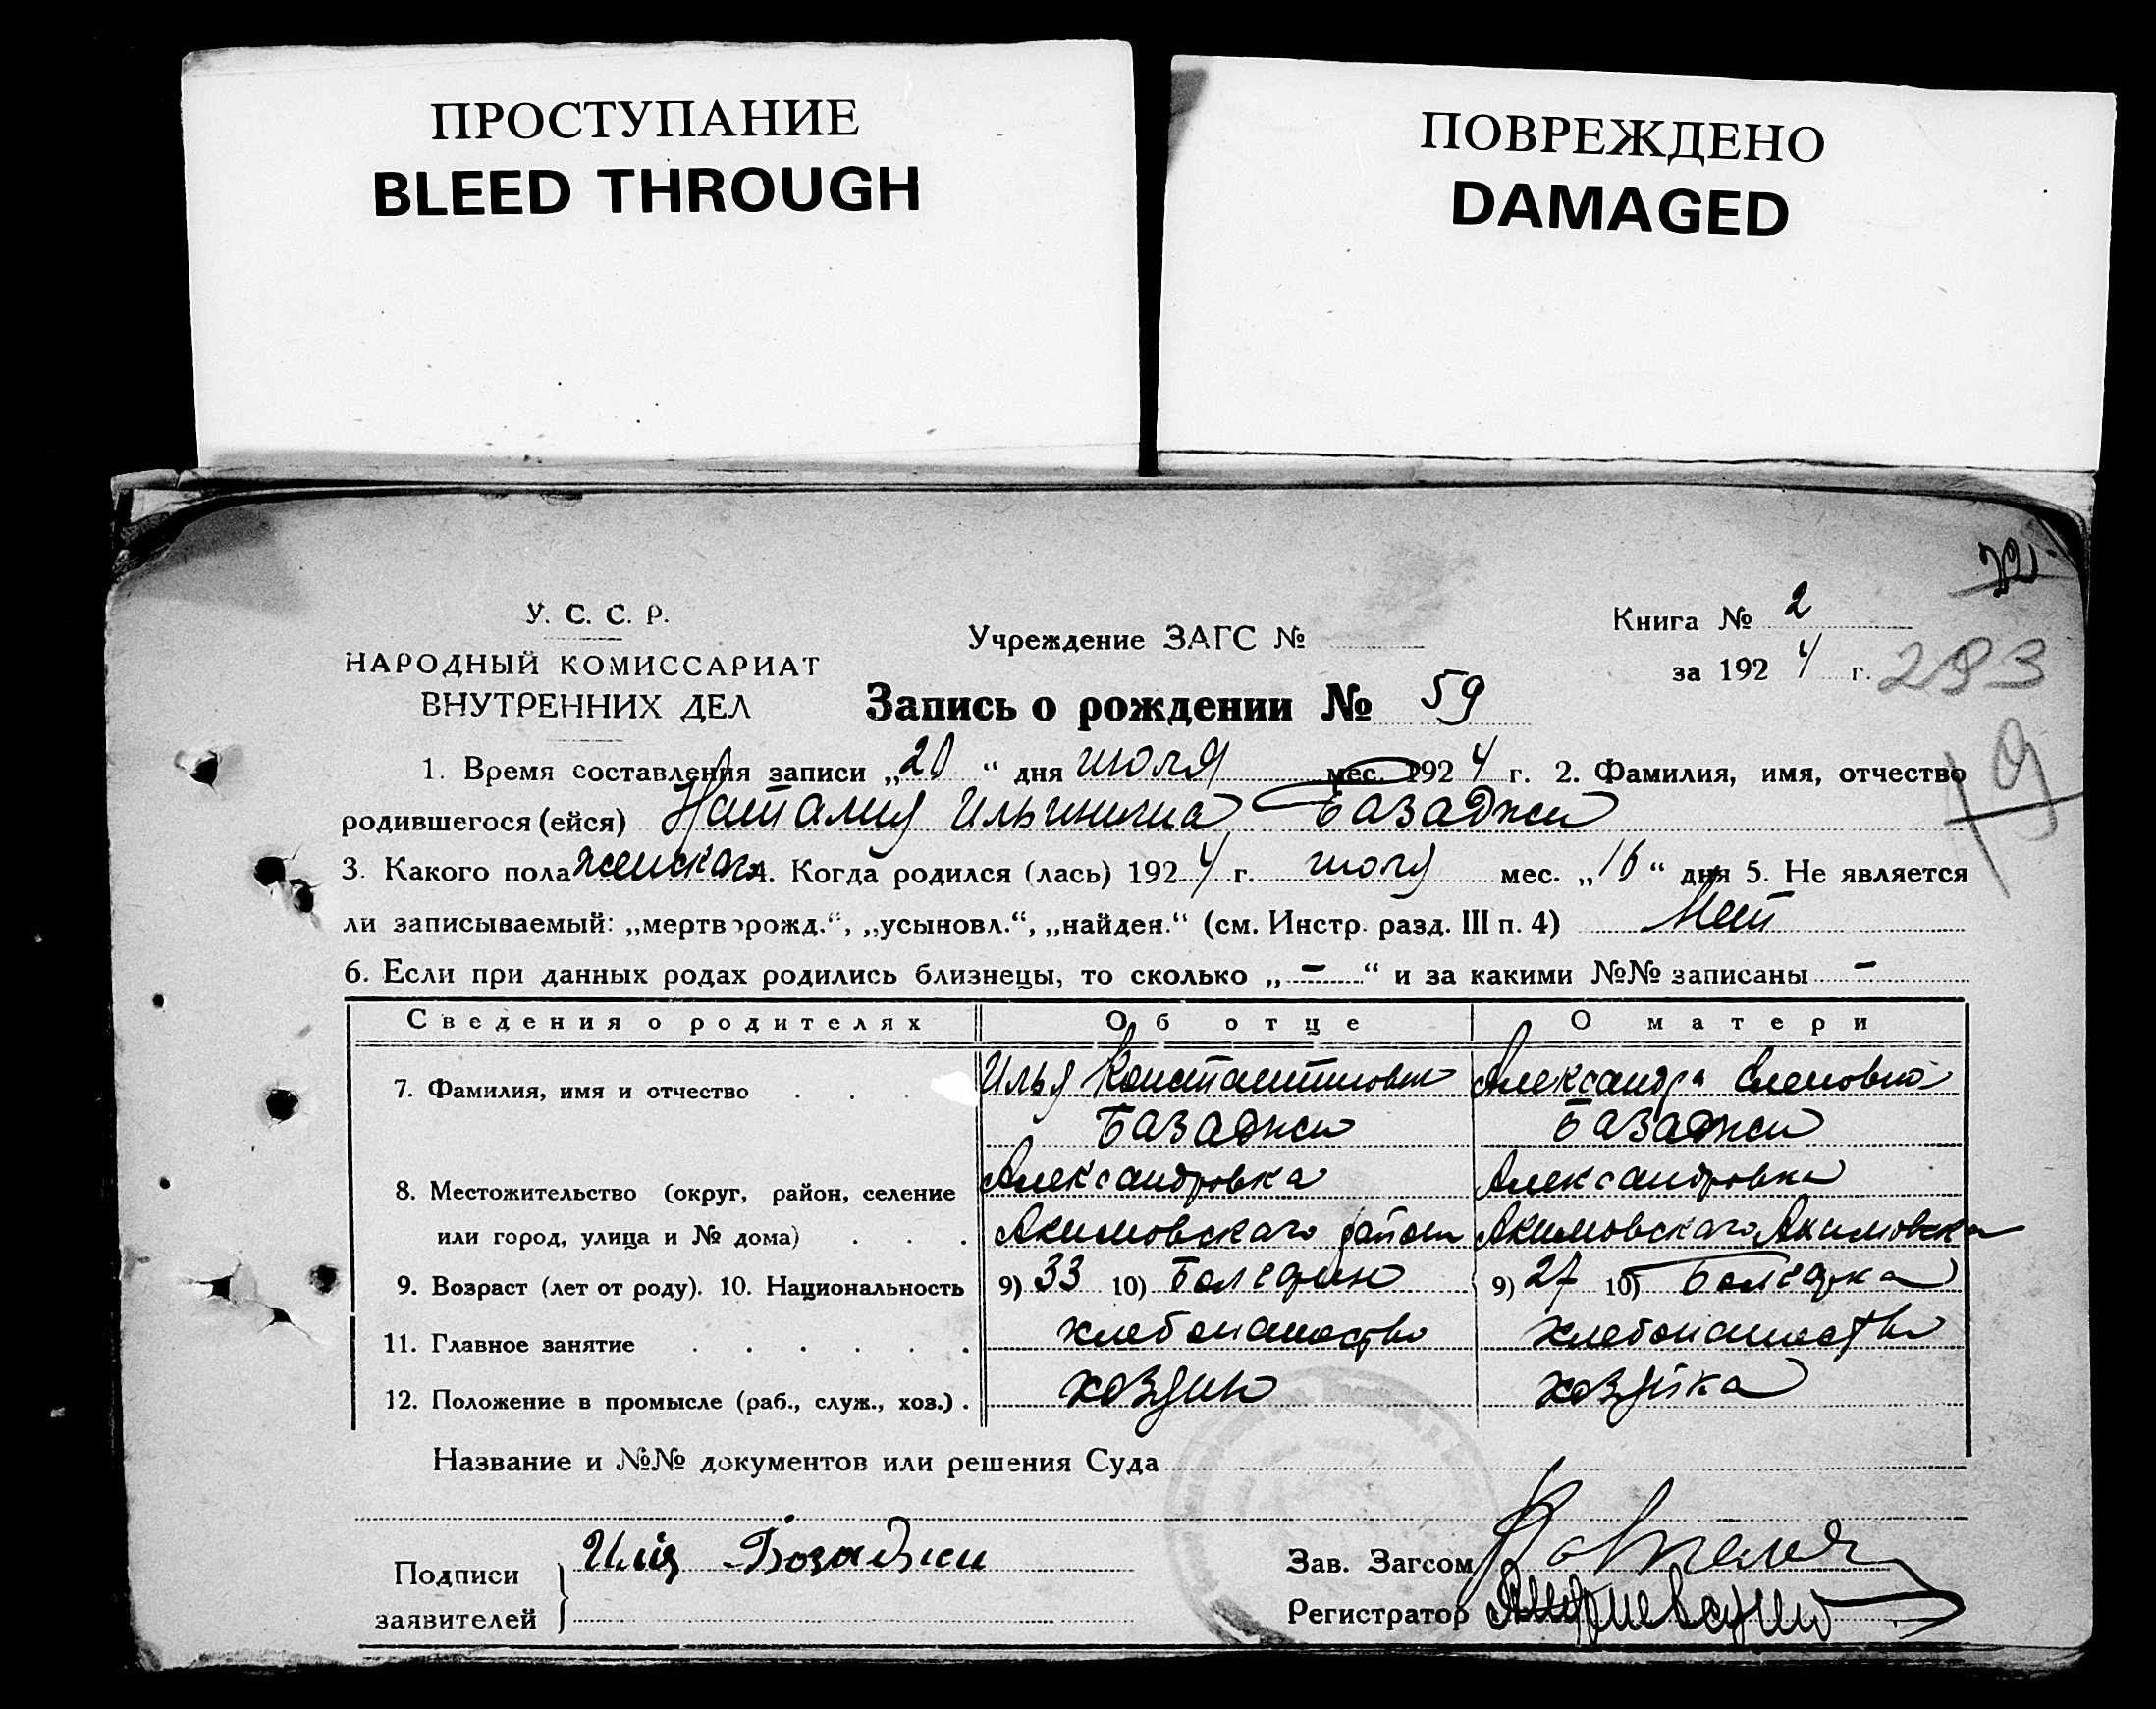 ПРОСТУПАНИЕ
BLEED THROUGH
ПОВРЕЖДЕНО
DAMAGED
У. С. С. Р.
НАРОДНЫЙ КОМИССАРИАТ
ВНУТРЕННИХ ДЕЛ
Учреждение ЗАГС №
Книга № 2
за 1924 г.
283
Запись о рождении № 59
19
1. Время составления записи „20“ дня июля мес. 1924 г. 2. Фамилия, имя, отчество
родившегося (ейся) Наталия Ильинична Базаджи
3. Какого пола женскаго 4. Когда родился (лась) 1924 г. июля мес. „16“ дня 5. Не является
ли записываемый: „мертворожд.“, „усыновл.“, „найден.“ (см. Инстр. разд. III п. 4) Нет
6. Если при данных родах родились близнецы, то сколько „-“ и за какими №№ записаны -
Сведения о родителях Об отце О матери
7. Фамилия, имя и отчество . . . Илья Константинович Александра Семеовна
Базаджи Базаджи
8. Местожительство (округ, район, селение Александровка Александровка
или город, улица и № дома) . . . Акимовскаго район Акимовскаго Акимовска
9. Возраст (лет от роду). 10. Национальность 9) 33 10) Болгарин 9) 27 10) Болгарка
11. Главное занятие . . . . . . хлебопашество хлебопашество
12. Положение в промысле (раб., служ., хоз.) . хозяин хозяйка
Название и №№ документов или решения Суда
Подписи
заявителей
Илія Бозаджи
Зав. Загсом
Регистратор